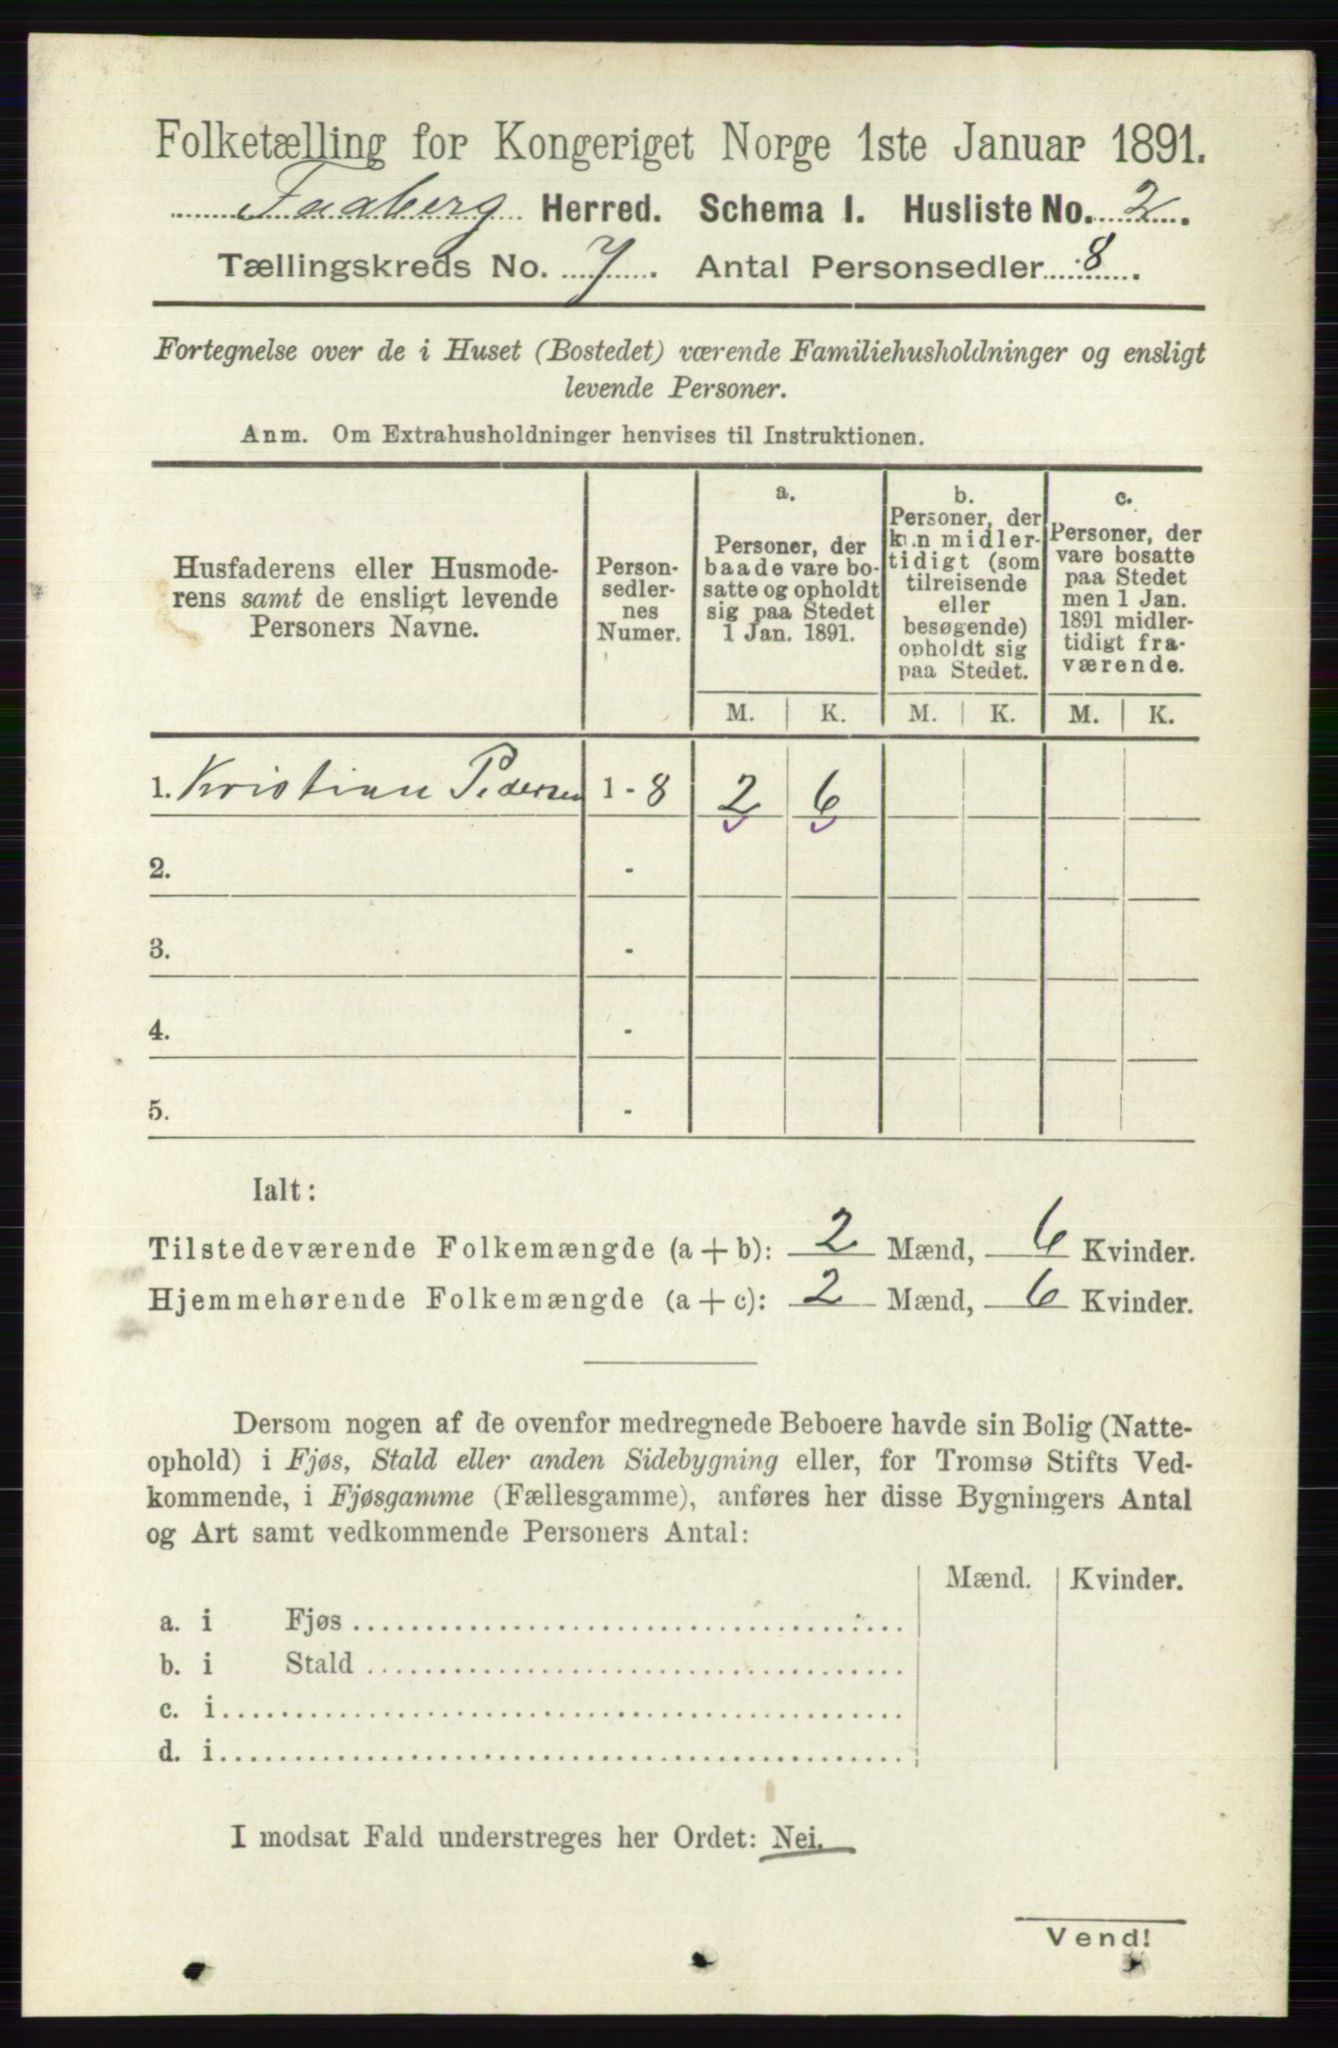 Folketælling for Kongeriget Norge 1ste Januar 1891.
Faaberg Herred. Schema I. Husliste No. 2.
Tællingskreds No. 7. Antal Personsedler 8.
Fortegnelse over de i Huset (Bostedet) værende Familiehusholdninger og ensligt
levende Personer.
Anm. Om Extrahusholdninger henvises til Instruktionen.
Husfaderens eller Husmode-
rens samt de ensligt levende
Personers Navne.
Person-
sedler-
nes
Numer.
a.
Personer, der
baade vare bo-
satte og opholdt
sig paa Stedet
1 Jan. 1891.
b.
Personer, der
kun midler-
tidigt (som
tilreisende
eller
besøgende)
opholdt sig
paa Stedet.
c.
Personer, der
vare bosatte
paa Stedet
men 1 Jan.
1891 midler-
tidigt fra-
værende.
M. K. M. K. M. K.
1. Kristian Pedersen 1 - 8 2 6
2. -
3. -
4. -
5. -
Ialt:
Tilstedeværende Folkemængde (a + b): 2 Mænd, 6 Kvinder.
Hjemmehørende Folkemængde (a + c): 2 Mænd, 6 Kvinder.
Dersom nogen af de ovenfor medregnede Beboere havde sin Bolig (Natte-
ophold) i Fjøs, Stald eller anden Sidebygning eller, for Tromsø Stifts Ved-
kommende, i Fjøsgamme (Fællesgamme), anføres her disse Bygningers Antal
og Art samt vedkommende Personers Antal:
Mænd. Kvinder.
a. i Fjøs
b. i Stald
c. i
d. i
I modsat Fald understreges her Ordet: Nei.
Vend!